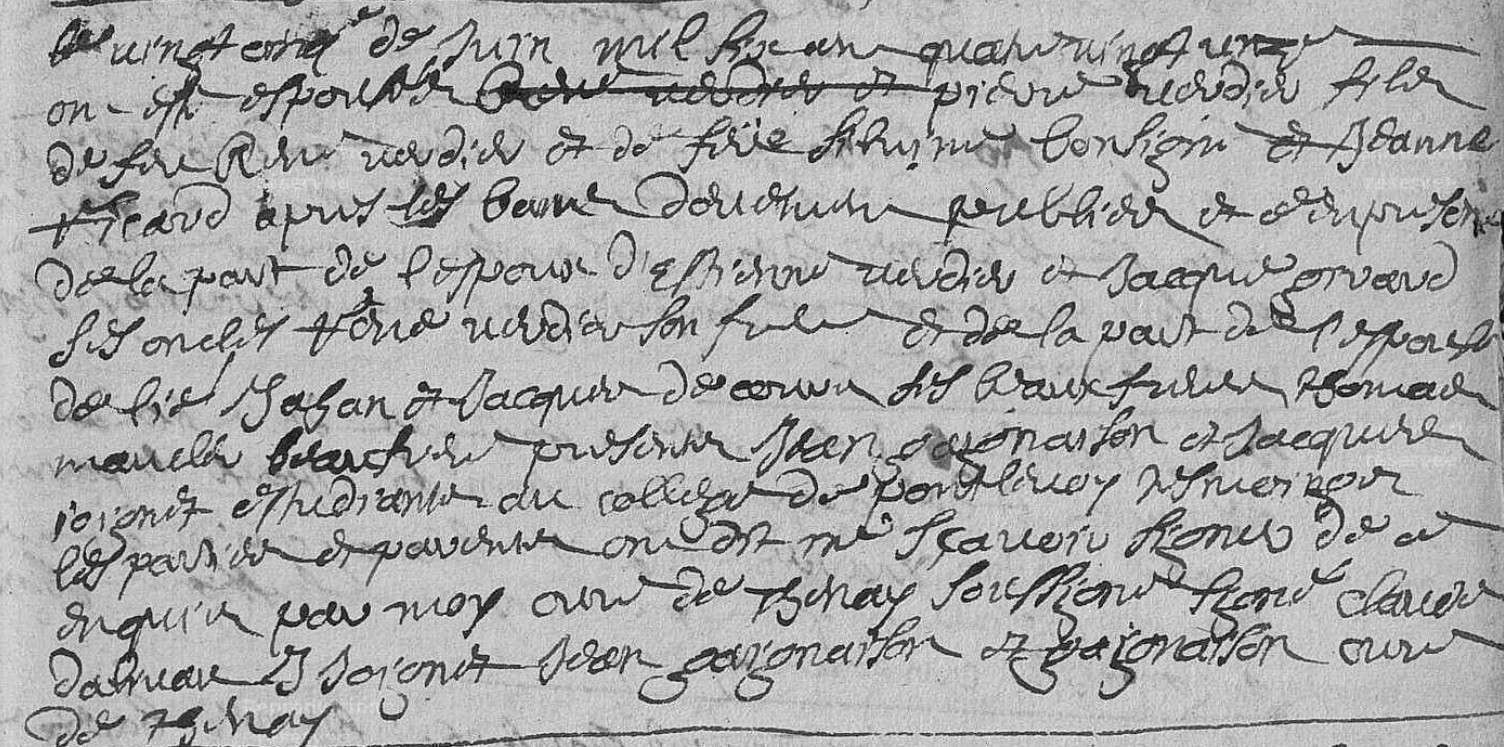 le vingt cinq de Juin mil six cens quatre vingt unze
on esté espousés pierre verdier fils
de feu René verdier et de feüe bonsigni et Jeanne
Picard apres les bans deuement publiés et en presence
de la part de l'espoux d'Estienne verdier et Jacque girard
ses oncles René verdier son frere et de la part de l'espouse
de Jahan et Jacques ses beaux freres Thomas
beaufrere presents Jean gaignaison et Jacques
joignet estudiants au college de pontlevoy tesmoings
les parties et parents ont dit ne sçavoir signer de ce
enquis par moy curé de Thenay soussigné signé claude
J Joignet Jean gaignaison et gaignaison curé
de Thenay